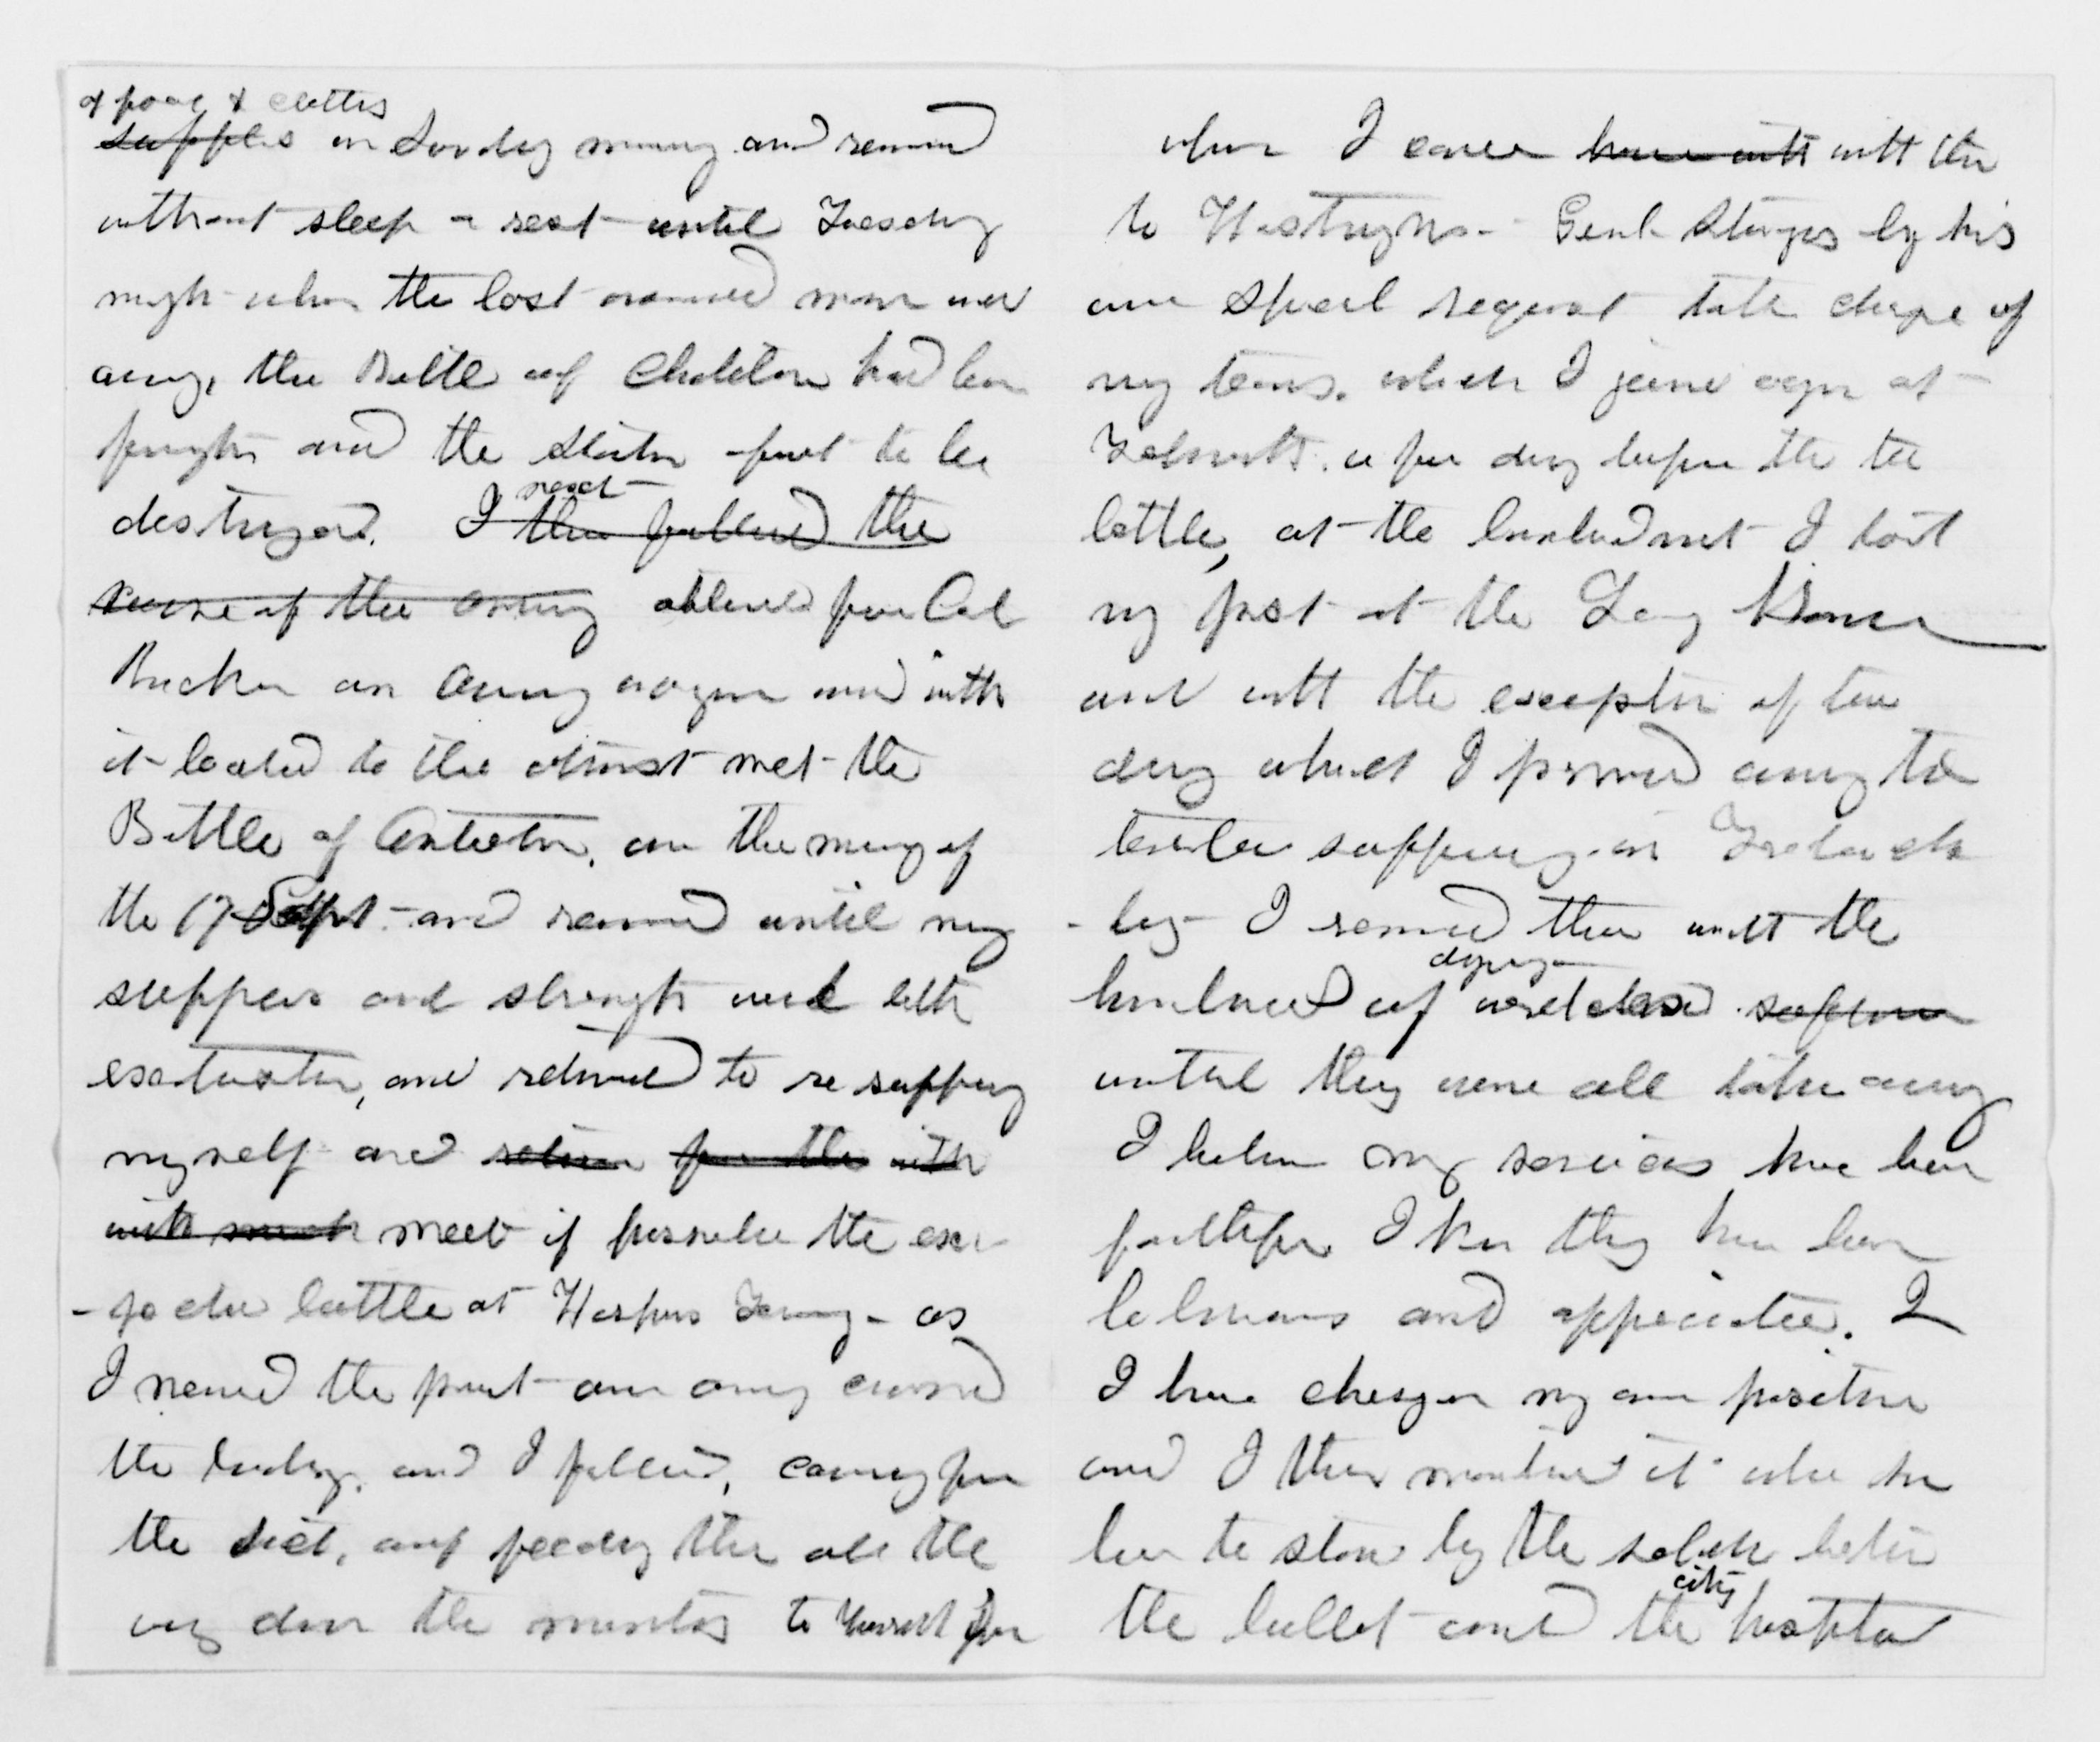 of food & clothes
supplies on Sunday morning and remained
without sleep or rest until Tuesday
night when the last wounded man was
away, the Battle of Chantilla had been
fought and the Station about to be
destroyed. I then next followed the
course of the army obtained from Col
Rucker an Army wagon and with
it loaded to the utmost met the
Battle of Antietam, on the morning of
the 17 Sept - and remained until my
supplies and strength were both
exhausted, and returned to re supply
myself and return for the with
with much meet if possible the ex-
-pected battle at Harpers Ferry - as
I neared the point our army crossed
the bridge, and I followed, caring for
the sick, and feeding them all the
way down the mountains to Warrenton
when I came home with with them
to Washington - Genl Sturgis by his
own special request took charge of
my teams, which I joined again at
Falmouth, a few days before the
battle, at the bombardment I took
my post at the Lacy House
and with the exception of two
days which I passed among the
terrible suffering in Fredericks
-burg - I remained there with the
hundreds of dying wretches
until they were all taken away
I believe my services have been
faithful I know they have been
laborious and appreciated. I
I have chosen my own position
and I then maintained it when
the soldier between
the bullet and the city hospital